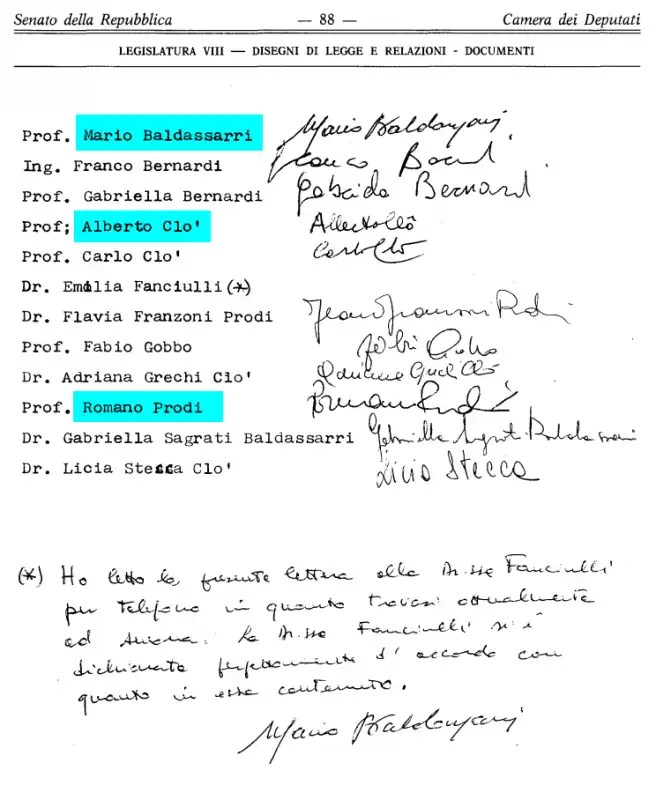 Senato della Repubblica — 88 — Camera dei Deputati
LEGISLATURA VIII — DISEGNI DI LEGGE E RELAZIONI - DOCUMENTI
Prof. Mario Baldassarri Mario Baldassarri
Ing. Franco Bernardi Franco
Prof. Gabriella Bernardi Gabriella Bernardi
Prof; Alberto Clo' Alberto Clò
Prof. Carlo Clo' Carlo Clò
Dr. Emilia Fanciulli (*)
Dr. Flavia Franzoni Prodi Prodi
Prof. Fabio Gobbo Fabio Gobbo
Dr. Adriana Grechi Clo' Adriana Grechi Clò
Prof. Romano Prodi Romano Prodi
Dr. Gabriella Sagrati Baldassarri Gabriella Sagrati Baldassarri
Dr. Licia Stecca Clo' Licia Stecca
(*) Ho letto la presente lettera alla Dr.ssa Fanciulli
per telefono in quanto trovasi attualmente
ad Ancona. La Dr.ssa Fanciulli si è
dichiarata perfettamente d'accordo con
quanto in essa contenuto.
Mario Baldassarri